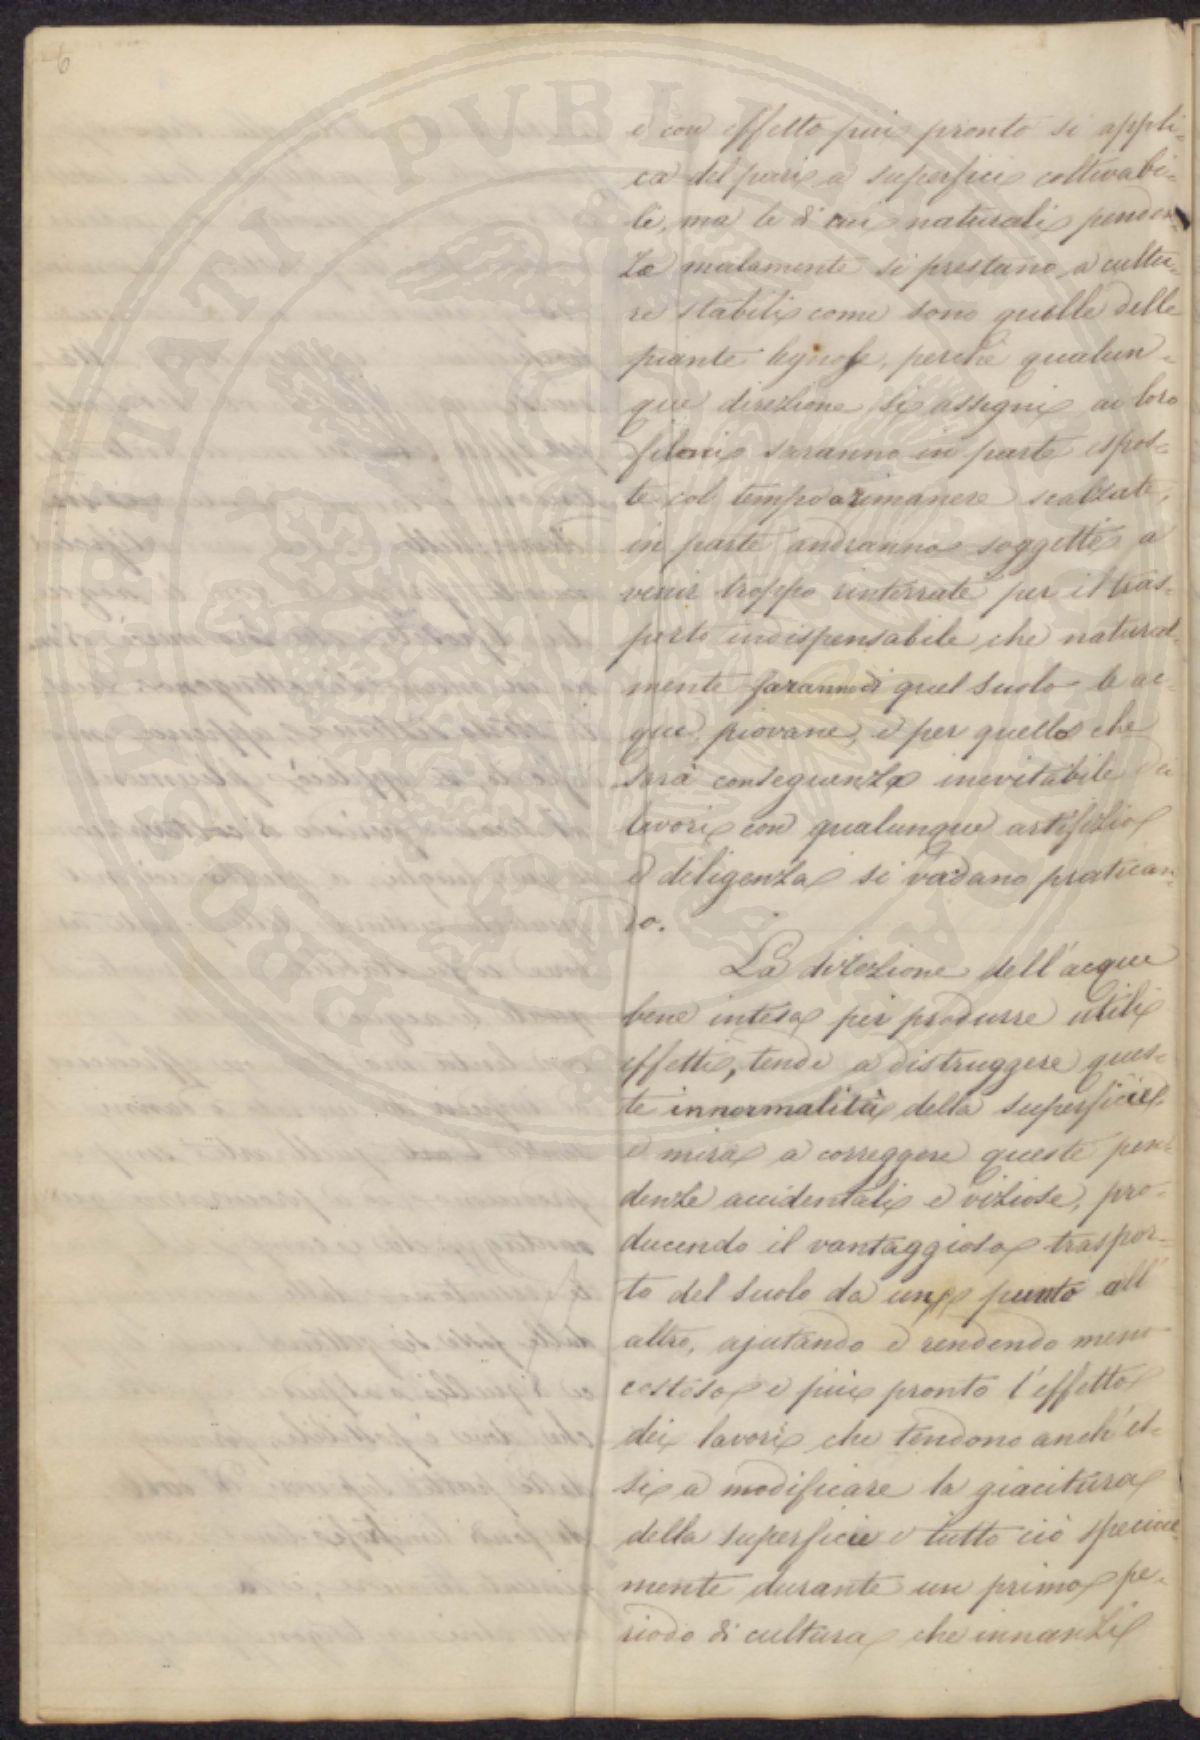 6
e con effetto più pronto si appli=
ca del pari a superficie coltivabi=
le, ma le di cui naturali penden=
ze malamente si prestano a cultu=
re stabili come sono quelle delle
piante legnose, perchè qualun=
que direzione si assegni ai loro
filoni saranno in parte espos=
te col tempo a rimanere scalzate,
in parte andranno soggette a
venir troppo interrate per il tras=
porto indispensabile che natural=
mente faranno di quel suolo le ac=
que piovane, e per quello che
sarà conseguenza inevitabile dei
lavori con qualunque artifizio
e diligenza si vadano pratican=
do.
La direzione dell'acque
bene intesa per produrre utili
effetti, tende a distruggere ques=
te innormalità della superficie
e mira a correggere queste pen=
denze accidentali e viziose, pro=
ducendo il vantaggioso traspor=
to del suolo da un punto all'
altro, ajutando e rendendo meno
costoso e più pronto l'effetto
dei lavori che tendono anch'es=
si a modificare la giacitura
della superficie e tutto ciò special
mente durante un primo pe=
riodo di cultura che innanzi
PVBLICAE